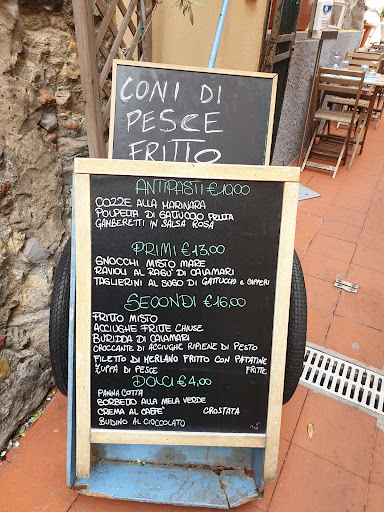 CONI DI
PESCE
FRITTO
ANTIPASTI €10,00
COZZE ALLA MARINARA
POLPETTA DI GATTUCCIO FRITTA
GAMBERETTI IN SALSA ROSA
PRIMI €13,00
GNOCCHI MISTO MARE
RAVIOLI AL RAGÙ DI CALAMARI
TAGLIERINI AL SUGO DI GATTUCCIO e CAPPERI
SECONDI €16,00
FRITTO MISTO
ACCIUGHE FRITTE CHIUSE
BURIDDA DI CALAMARI
CROCCANTE DI ACCIUGHE RIPIENE DI PESTO
FILETTO DI MERLANO FRITTO CON PATATINE FRITTE
ZUPPA DI PESCE
DOLCI €4,00
PANNA COTTA
SORBETTO ALLA MELA VERDE
CREMA AL CAFFE' CROSTATA
BUDINO AL CIOCCOLATO